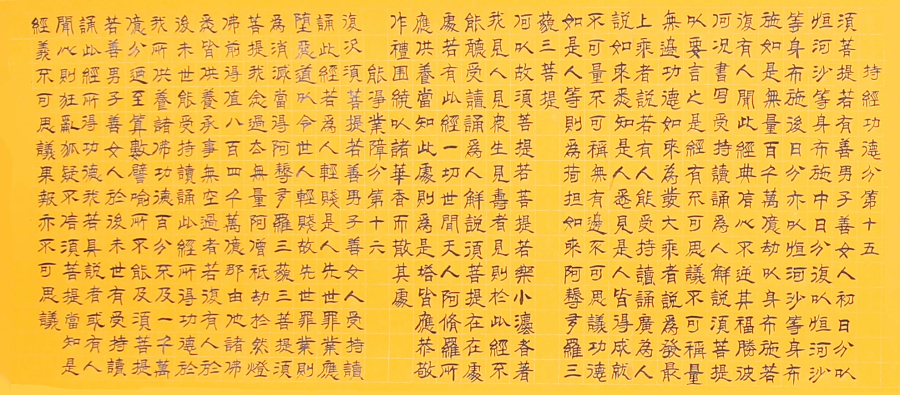 持經功德分第十五
須菩提若有善男子善女人初日分以
恒河沙等身布施中日分復以恒河沙
等身布施後日分亦以恒河沙等身布
施如是無量百千萬億劫以身布施若
復有人聞此經典信心不逆其福勝彼
何況書寫受持讀誦為人解說須菩提
以要言之是經有不可思議不可稱量
無邊功德如來為發大乘者說為發最
上乘者說若有人能受持讀誦廣為人
說如來悉知是人悉見是人皆得成就
不可量不可稱無有邊不可思議功德
如是人等則為荷擔如來阿耨多羅三
藐三菩提
何以故須菩提若樂小灋者著
我見人見衆生見壽者見則於此經不
能聽受讀誦為人解說須菩提在在處
處若有此經一切世間天人阿脩羅所
應供養當知此處則為是塔皆應恭敬
作禮圍繞以諸華香而散其處
能淨業障分第十六
復次須菩提若善男子善女人受持讀
誦此經若為人輕賤是人先世罪業應
墮惡道以今世人輕賤故先世罪業則
為消滅當得阿耨多羅三藐三菩提須
菩提我念過去無量阿僧祇劫於然燈
佛前得值八百四千萬億那由他諸佛
悉皆供養承事無空過者若復有人於
後末世能受持讀誦此經所得功德於
我所供養諸佛功德百分不及一千萬
億分乃至算數譬喻所不能及須菩提
若善男子善女人於後末世有受持讀
誦此經所得功德我若具說者或有人
聞心則狂亂狐疑不信須菩提當知是
經義不可思議果報亦不可思議